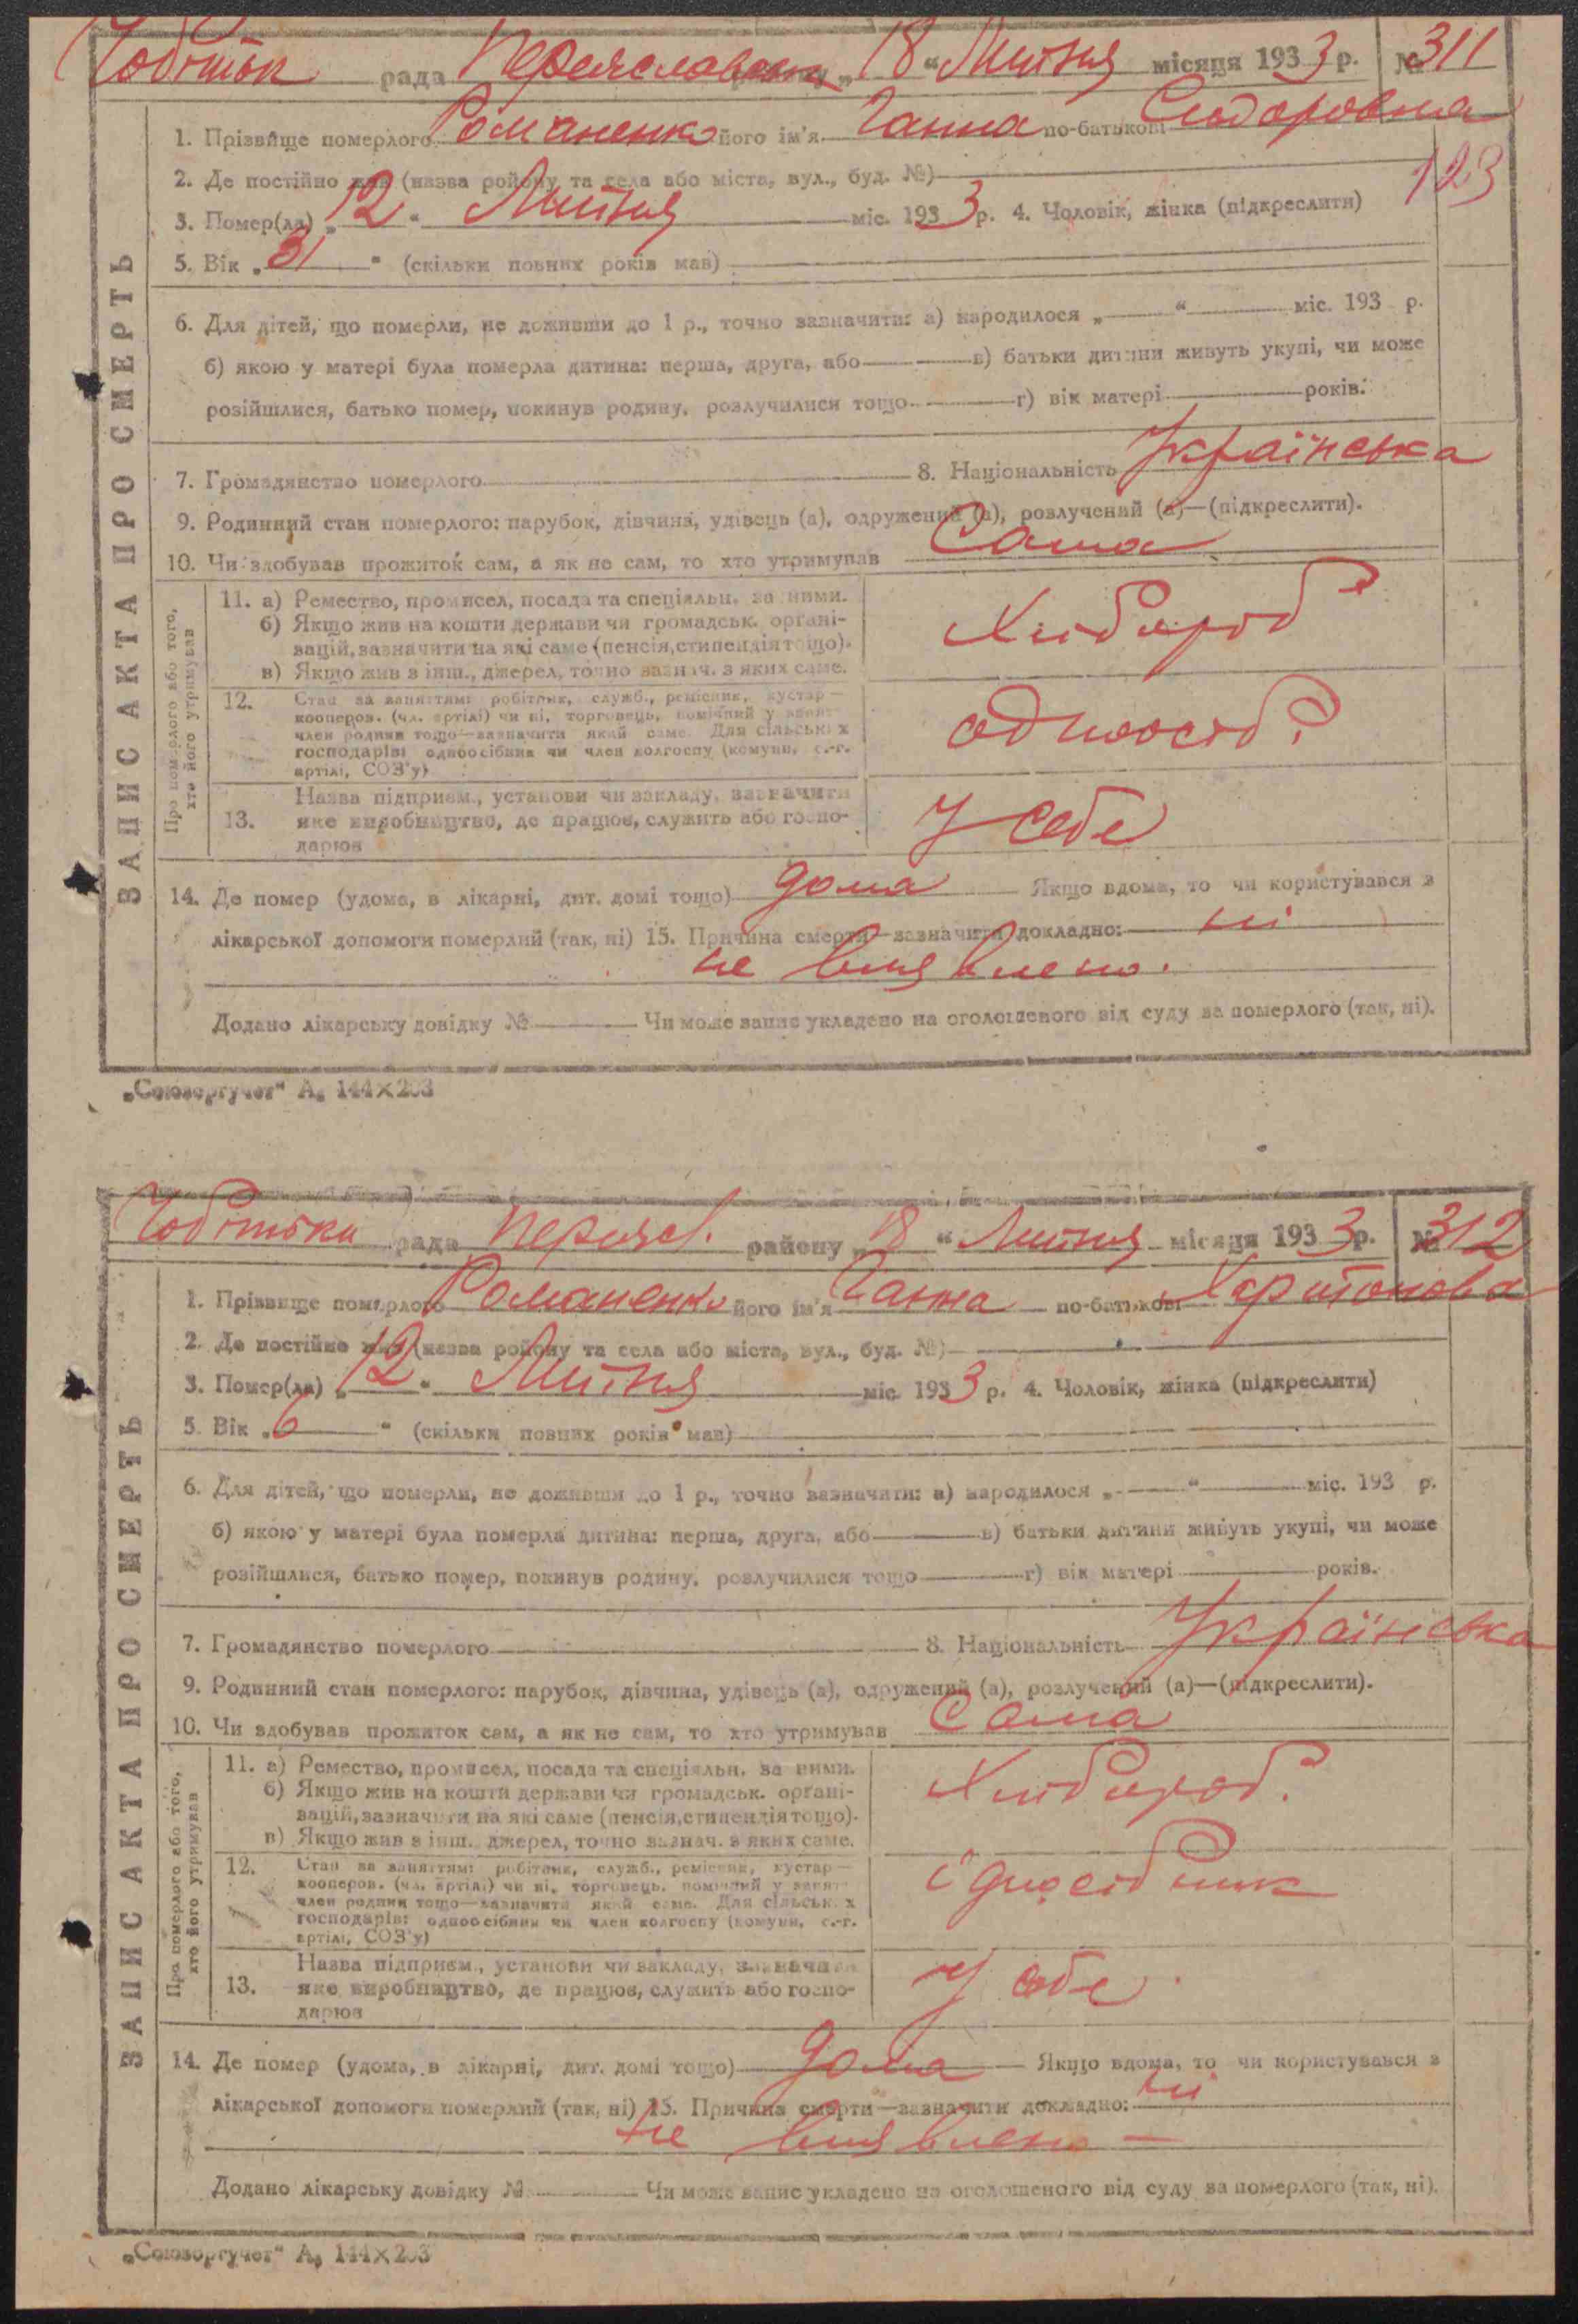 рада Переяславськ „18“ Липня місяця 1933 р. № 311
123
ЗАПИС АКТА ПРО СМЕРТЬ
1. Прізвище померлого Романенко його ім'я Ганна по-батькові Сидоровна
2. Де постійно жив (назва району та села або міста, вул., буд. №)
3. Помер(ла) „12“ Липня міс. 1933 р. 4. Чоловік, жінка (підкреслити)
5. Вік „31“ (скільки повних років мав)
6. Для дітей, що померли, не доживши до 1 р., точно зазначити: а) народилося „ “ міс. 193 р.
б) якою у матері була померла дитина: перша, друга, або в) батьки дитини живуть укупі, чи може
розійшлися, батько помер, покинув родину, розлучилися тощо г) вік матері років.
7. Громадянство померлого 8. Національність Українська
9. Родинний стан померлого: парубок, дівчина, удівець (а), одружений (а), розлучений (а)—(підкреслити).
10. Чи здобував прожиток сам, а як не сам, то хто утримував Сама
Про померлого або того,
хто його утримував
11. а) Ремество, промисел, посада та спеціяльн. за ними.
б) Якщо жив на кошти держави чи громадськ. органі-
зацій, зазначити на які саме (пенсія, стипендія тощо).
в) Якщо жив з інш., джерел, точно зазнач. з яких саме.
Хлібороб
12. Стан за заняттям: робітник, служб., ремісник, кустар—
кооперов. (чл. артілі) чи ні, торговець, помічний у занят.
член родини тощо—зазначити який саме. Для сільських
господарів: одноосібник чи член колгоспу (комуни, с.-г.
артілі, СОЗ'у)
одноосіб.
13. Назва підприєм., установи чи закладу, зазначити
яке виробництво, де працює, служить або госпо-
дарює
У себе
14. Де помер (удома, в лікарні, дит. домі тощо) дома Якщо вдома, то чи користувався з
лікарської допомоги померлий (так, ні) 15. Причина смерти—зазначити докладно: ні
не виявлено.
Додано лікарську довідку № Чи може запис укладено на оголошеного від суду за померлого (так, ні).
„Союзоргучет“ А₅ 144×203
рада Переясл. району „18“ Липня місяця 1933 р. № 312
ЗАПИС АКТА ПРО СМЕРТЬ
1. Прізвище померлого Романенко його ім'я Ганна по-батькові Харитонова
2. Де постійно жив (назва району та села або міста, вул., буд. №)
3. Помер(ла) „12“ Липня міс. 1933 р. 4. Чоловік, жінка (підкреслити)
5. Вік „6“ (скільки повних років мав)
6. Для дітей, що померли, не доживши до 1 р., точно зазначити: а) народилося „ “ міс. 193 р.
б) якою у матері була померла дитина: перша, друга, або в) батьки дитини живуть укупі, чи може
розійшлися, батько помер, покинув родину, розлучилися тощо г) вік матері років.
7. Громадянство померлого 8. Національність Українська
9. Родинний стан померлого: парубок, дівчина, удівець (а), одружений (а), розлучений (а)—(підкреслити).
10. Чи здобував прожиток сам, а як не сам, то хто утримував Сама
Про померлого або того,
хто його утримував
11. а) Ремество, промисел, посада та спеціяльн. за ними.
б) Якщо жив на кошти держави чи громадськ. органі-
зацій, зазначити на які саме (пенсія, стипендія тощо).
в) Якщо жив з інш., джерел, точно зазнач. з яких саме.
Хлібороб.
12. Стан за заняттям: робітник, служб., ремісник, кустар—
кооперов. (чл. артілі) чи ні, торговець, помічний у занят.
член родини тощо—зазначити який саме. Для сільських
господарів: одноосібник чи член колгоспу (комуни, с.-г.
артілі, СОЗ'у)
13. Назва підприєм., установи чи закладу, зазначити
яке виробництво, де працює, служить або госпо-
дарює
У себе
14. Де помер (удома, в лікарні, дит. домі тощо) дома Якщо вдома, то чи користувався з
лікарської допомоги померлий (так, ні) 15. Причина смерти—зазначити докладно: ні
не виявлено —
Додано лікарську довідку № Чи може запис укладено на оголошеного від суду за померлого (так, ні).
„Союзоргучет“ А₅ 144×203